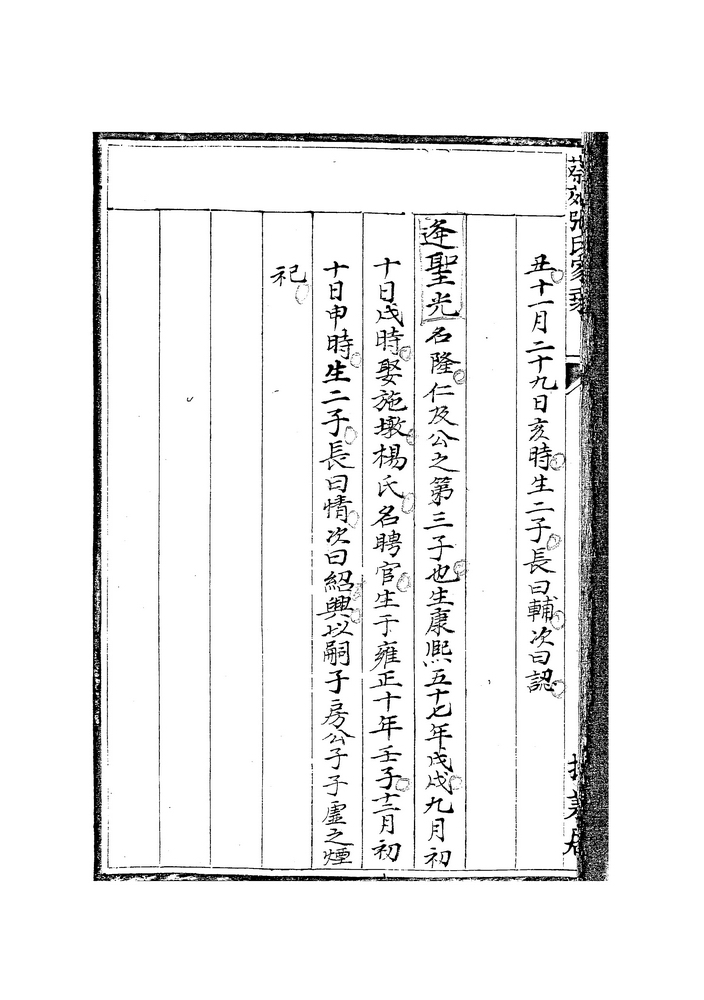 張氏家
丑十一月二十九日亥時生二子長曰輔次曰認
逄聖光名隆仁及公之第三子也生康熙五十七年戊戌九月初
十日戌時娶施墩楊氏名聘官生于雍正十年壬子十二月初
十日申時生二子長曰情次曰紹興以嗣子房公子子虛之煙
祀